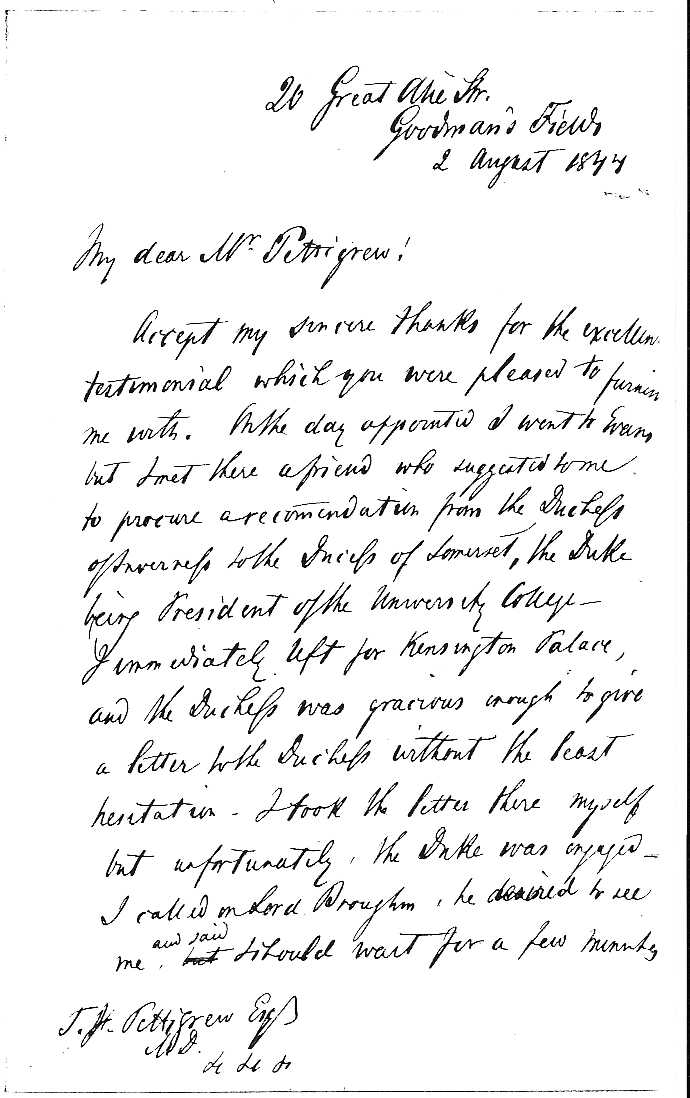 20 Great Alie Str.
Goodman's Fields
2 August 1844
My dear Mr. Pettigrew!
Accept my sincere thanks for the excellen
testimonial which you were pleased to furnis
me with. On the day appointed I went to Evans
but I met there a friend who suggested to me
to procure a recomendation from the Duchess
of Inverness to the Duchess of Somerset, the Duke
being President of the University College –
I immediately left for Kensington Palace,
and the Duchess was gracious enough to give
a letter to the Duchess without the least
hesitation – I took the letter there myself
but unfortunately, the Duke was engaged –
I called on Lord Brougham, he desired to see
and said
me. but I should wait for a few minutes
T. J. Pettigrew Esq
M.D.
&c &c &c